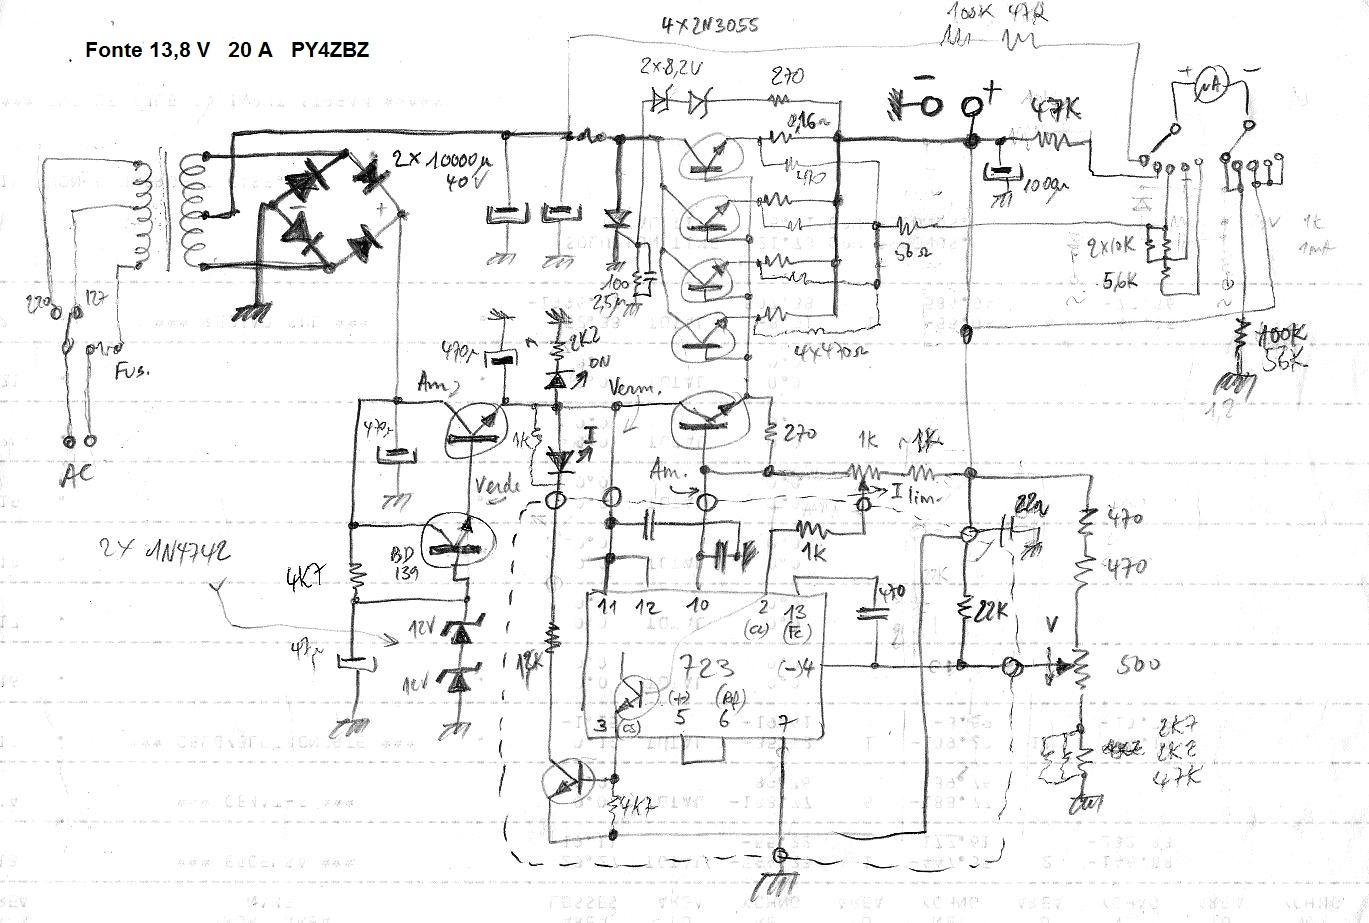 4X2N3055
100K 47K
Fonte 13,8 V 20 A PY4ZBZ
2x8,2V
270
+ -
µA
- +
47K
0,16Ω
470
2X 10000µ
40V
+
1000µ
220
127
100
25µ
56Ω
2x10K
5,6K
Fus.
AC
470µ
2K2
ON
4X470Ω
100K
56K
12
Am.
Verm.
1K
I
270
1K
1K
470µ
Verde
Am.
I lim.
22n
470
470
2X 1N4742
BD
139
1K
4K7
11 12 10 2 13
(CL) (Fc)
470
22K
V
12V
47µ
12K
723
(-)4
500
12V
(+) (Rf)
3 5 6 7
(CS)
2K7
2K2
47K
4K7